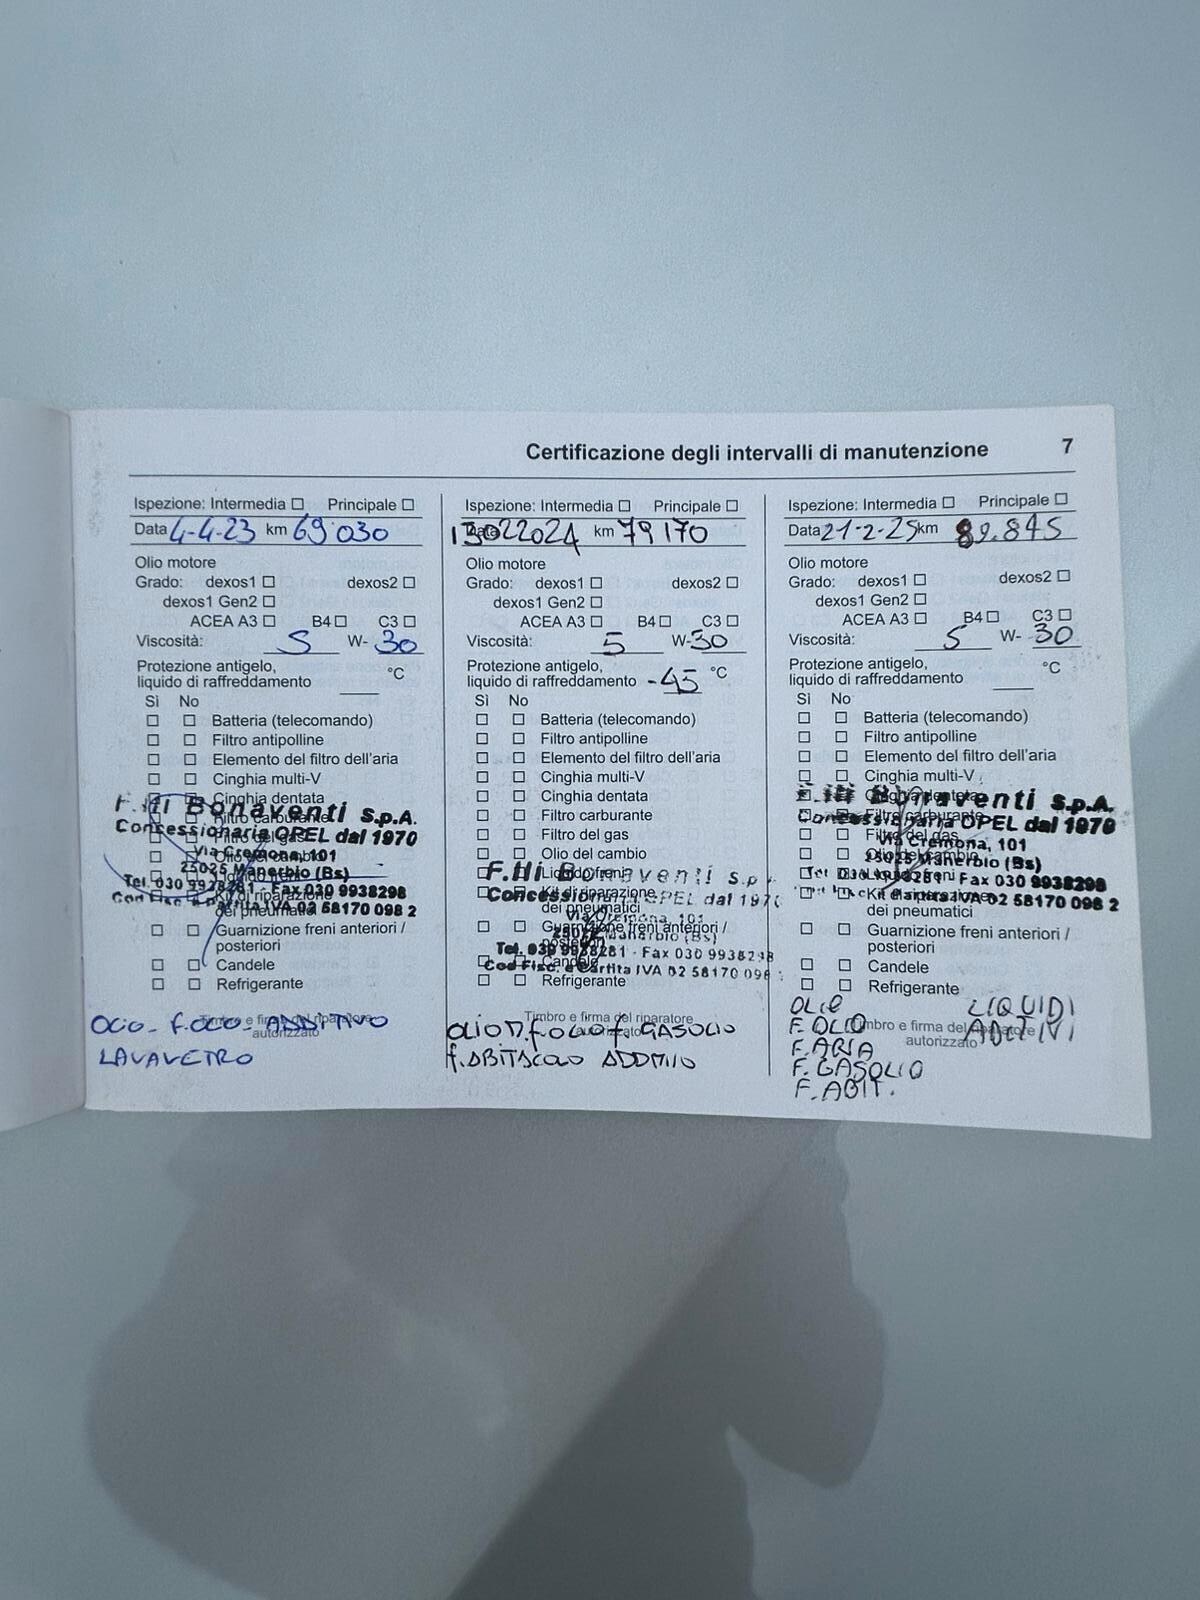 Certificazione degli intervalli di manutenzione 7
Ispezione: Intermedia ☐ Principale ☐
Data 4-4-23 km 69030
Olio motore
Grado: dexos1 ☐ dexos2 ☐
dexos1 Gen2 ☐
ACEA A3 ☐ B4 ☐ C3 ☐
Viscosità: 5 W- 30
Protezione antigelo,
liquido di raffreddamento °C
Sì No
☐ ☐ Batteria (telecomando)
☐ ☐ Filtro antipolline
☐ ☐ Elemento del filtro dell'aria
☐ ☐ Cinghia multi-V
☐ ☐ Cinghia dentata
Filtro carburante
Filtro del gas
Olio del cambio
Kit di riparazione
dei pneumatici
F.lli Bonaventi S.p.A.
Concessionaria OPEL dal 1970
Via Cremona, 101
25025 Manerbio (Bs)
Tel. 030 9938281 - Fax 030 9938298
Cod Fisc. e Partita IVA 02 58170 098 2
☐ ☐ Guarnizione freni anteriori /
posteriori
☐ ☐ Candele
☐ ☐ Refrigerante
Timbro e firma del riparatore
autorizzato
OLIO - F.OLIO - ADDITIVO
LAVAVETRO
Ispezione: Intermedia ☐ Principale ☐
Data 13022024 km 79170
Olio motore
Grado: dexos1 ☐ dexos2 ☐
dexos1 Gen2 ☐
ACEA A3 ☐ B4 ☐ C3 ☐
Viscosità: 5 W- 30
Protezione antigelo,
liquido di raffreddamento -45 °C
Sì No
☐ ☐ Batteria (telecomando)
☐ ☐ Filtro antipolline
☐ ☐ Elemento del filtro dell'aria
☐ ☐ Cinghia multi-V
☐ ☐ Cinghia dentata
☐ ☐ Filtro carburante
☐ ☐ Filtro del gas
☐ ☐ Olio del cambio
☐ ☐ Liquido freni
☐ ☐ Kit di riparazione
dei pneumatici
☐ ☐ Guarnizione freni anteriori /
☐ ☐ Candele
☐ ☐ Refrigerante
F.lli Bonaventi S.p.A
Concessionaria OPEL dal 1970
Via Cremona, 101
25025 Manerbio (Bs)
Tel. 030 9938281 - Fax 030 9938298
Cod Fisc. e Partita IVA 02 58170 098
Timbro e firma del riparatore
autorizzato
OLIO M. F.OLIO F. GASOLIO
F. ABITACOLO ADDITIVO
Ispezione: Intermedia ☐ Principale ☐
Data 21-2-25 km 89.845
Olio motore
Grado: dexos1 ☐ dexos2 ☐
dexos1 Gen2 ☐
ACEA A3 ☐ B4 ☐ C3 ☐
Viscosità: 5 W- 30
Protezione antigelo,
liquido di raffreddamento °C
Sì No
☐ ☐ Batteria (telecomando)
☐ ☐ Filtro antipolline
☐ ☐ Elemento del filtro dell'aria
☐ ☐ Cinghia multi-V
☐ ☐ Cinghia dentata
☐ ☐ Filtro carburante
☐ ☐ Filtro del gas
☐ ☐ Olio del cambio
☐ ☐ Liquido freni
☐ ☐ Kit di riparazione
dei pneumatici
F.lli Bonaventi S.p.A.
Concessionaria OPEL dal 1970
Via Cremona, 101
25025 Manerbio (Bs)
Tel 030 9938281 - Fax 030 9938298
Cod Fisc. e Partita IVA 02 58170 098 2
☐ ☐ Guarnizione freni anteriori /
posteriori
☐ ☐ Candele
☐ ☐ Refrigerante
Timbro e firma del riparatore
autorizzato
OLIO LIQUIDI
F. OLIO ADDITIVI
F. ARIA
F. GASOLIO
F. ABIT.